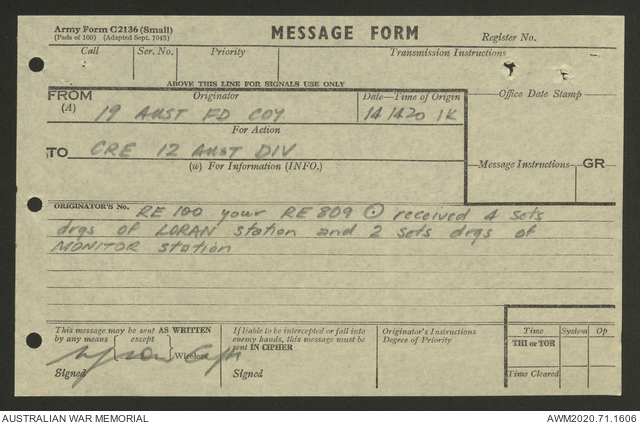 Army Form C2136 (Small)
(Pads of 100) (Adapted Sept. 1943)
MESSAGE FORM
Register No.
Call
Ser. No.
Priority
Transmission Instructions
ABOVE THIS LINE FOR SIGNALS USE ONLY
FROM
(A)
Originator
Date—Time of Origin
Office Date Stamp
19 AUST FD COY
14 1420 1K
For Action
TO
CRE 12 AUST DIV
(w) For Information (INFO.)
Message Instructions
GR
ORIGINATOR'S No.
RE 100 your RE 809 ⊙ received 4 sets
drgs of LORAN station and 2 sets drgs of
MONITOR station
This message may be sent AS WRITTEN
by any means
except
Wireless
Signed
Capt
If liable to be intercepted or fall into
enemy hands, this message must be
sent IN CIPHER
Signed
Originator's Instructions
Degree of Priority
Time
System
Op
THI or TOR
Time Cleared
AUSTRALIAN WAR MEMORIAL
AWM2020.71.1606